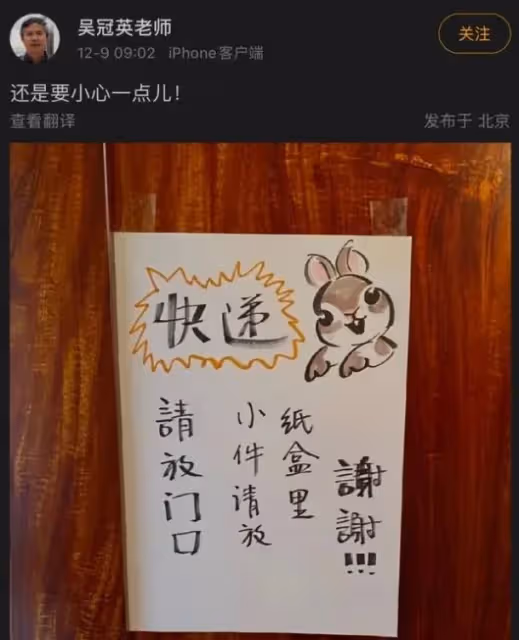 吴冠英老师
12-9 09:02 iPhone客户端
关注
还是要小心一点儿！
查看翻译
发布于 北京
快递
請放门口
小件请放
纸盒里
謝謝!!!